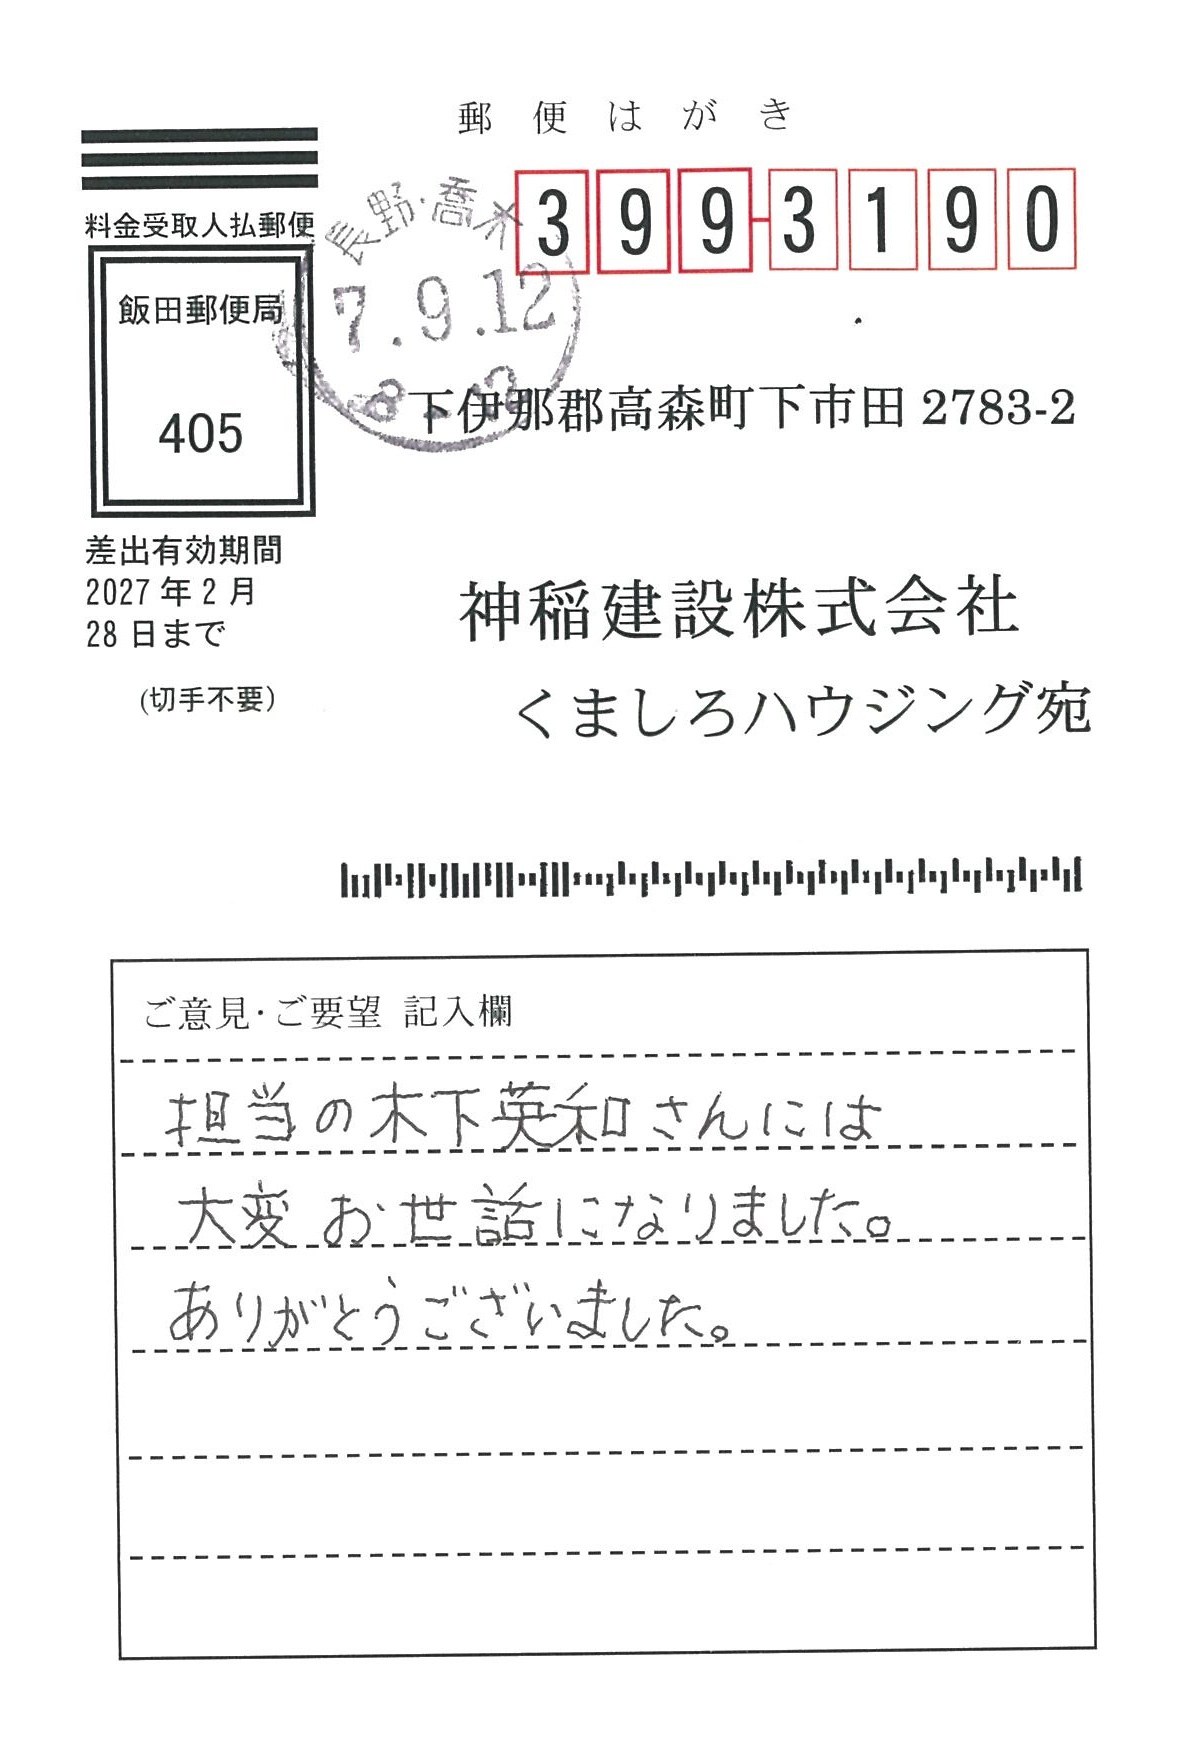 郵便はがき
料金受取人払郵便
飯田郵便局
405
差出有効期間
2027年2月
28日まで
(切手不要)
長野・喬木
7.9.12
8-12
399-3190
下伊那郡高森町下市田2783-2
神稲建設株式会社
くましろハウジング宛
ご意見・ご要望 記入欄
担当の木下英和さんには
大変お世話になりました。
ありがとうございました。